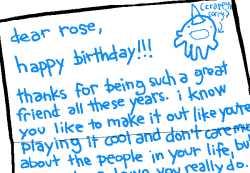 (crappy
sorry)
dear rose,
happy birthday!!!
thanks for being such a great
friend all these years. i know
you like to make it out like you're
playing it cool and don't care
about the people in your life, bu
you really do.